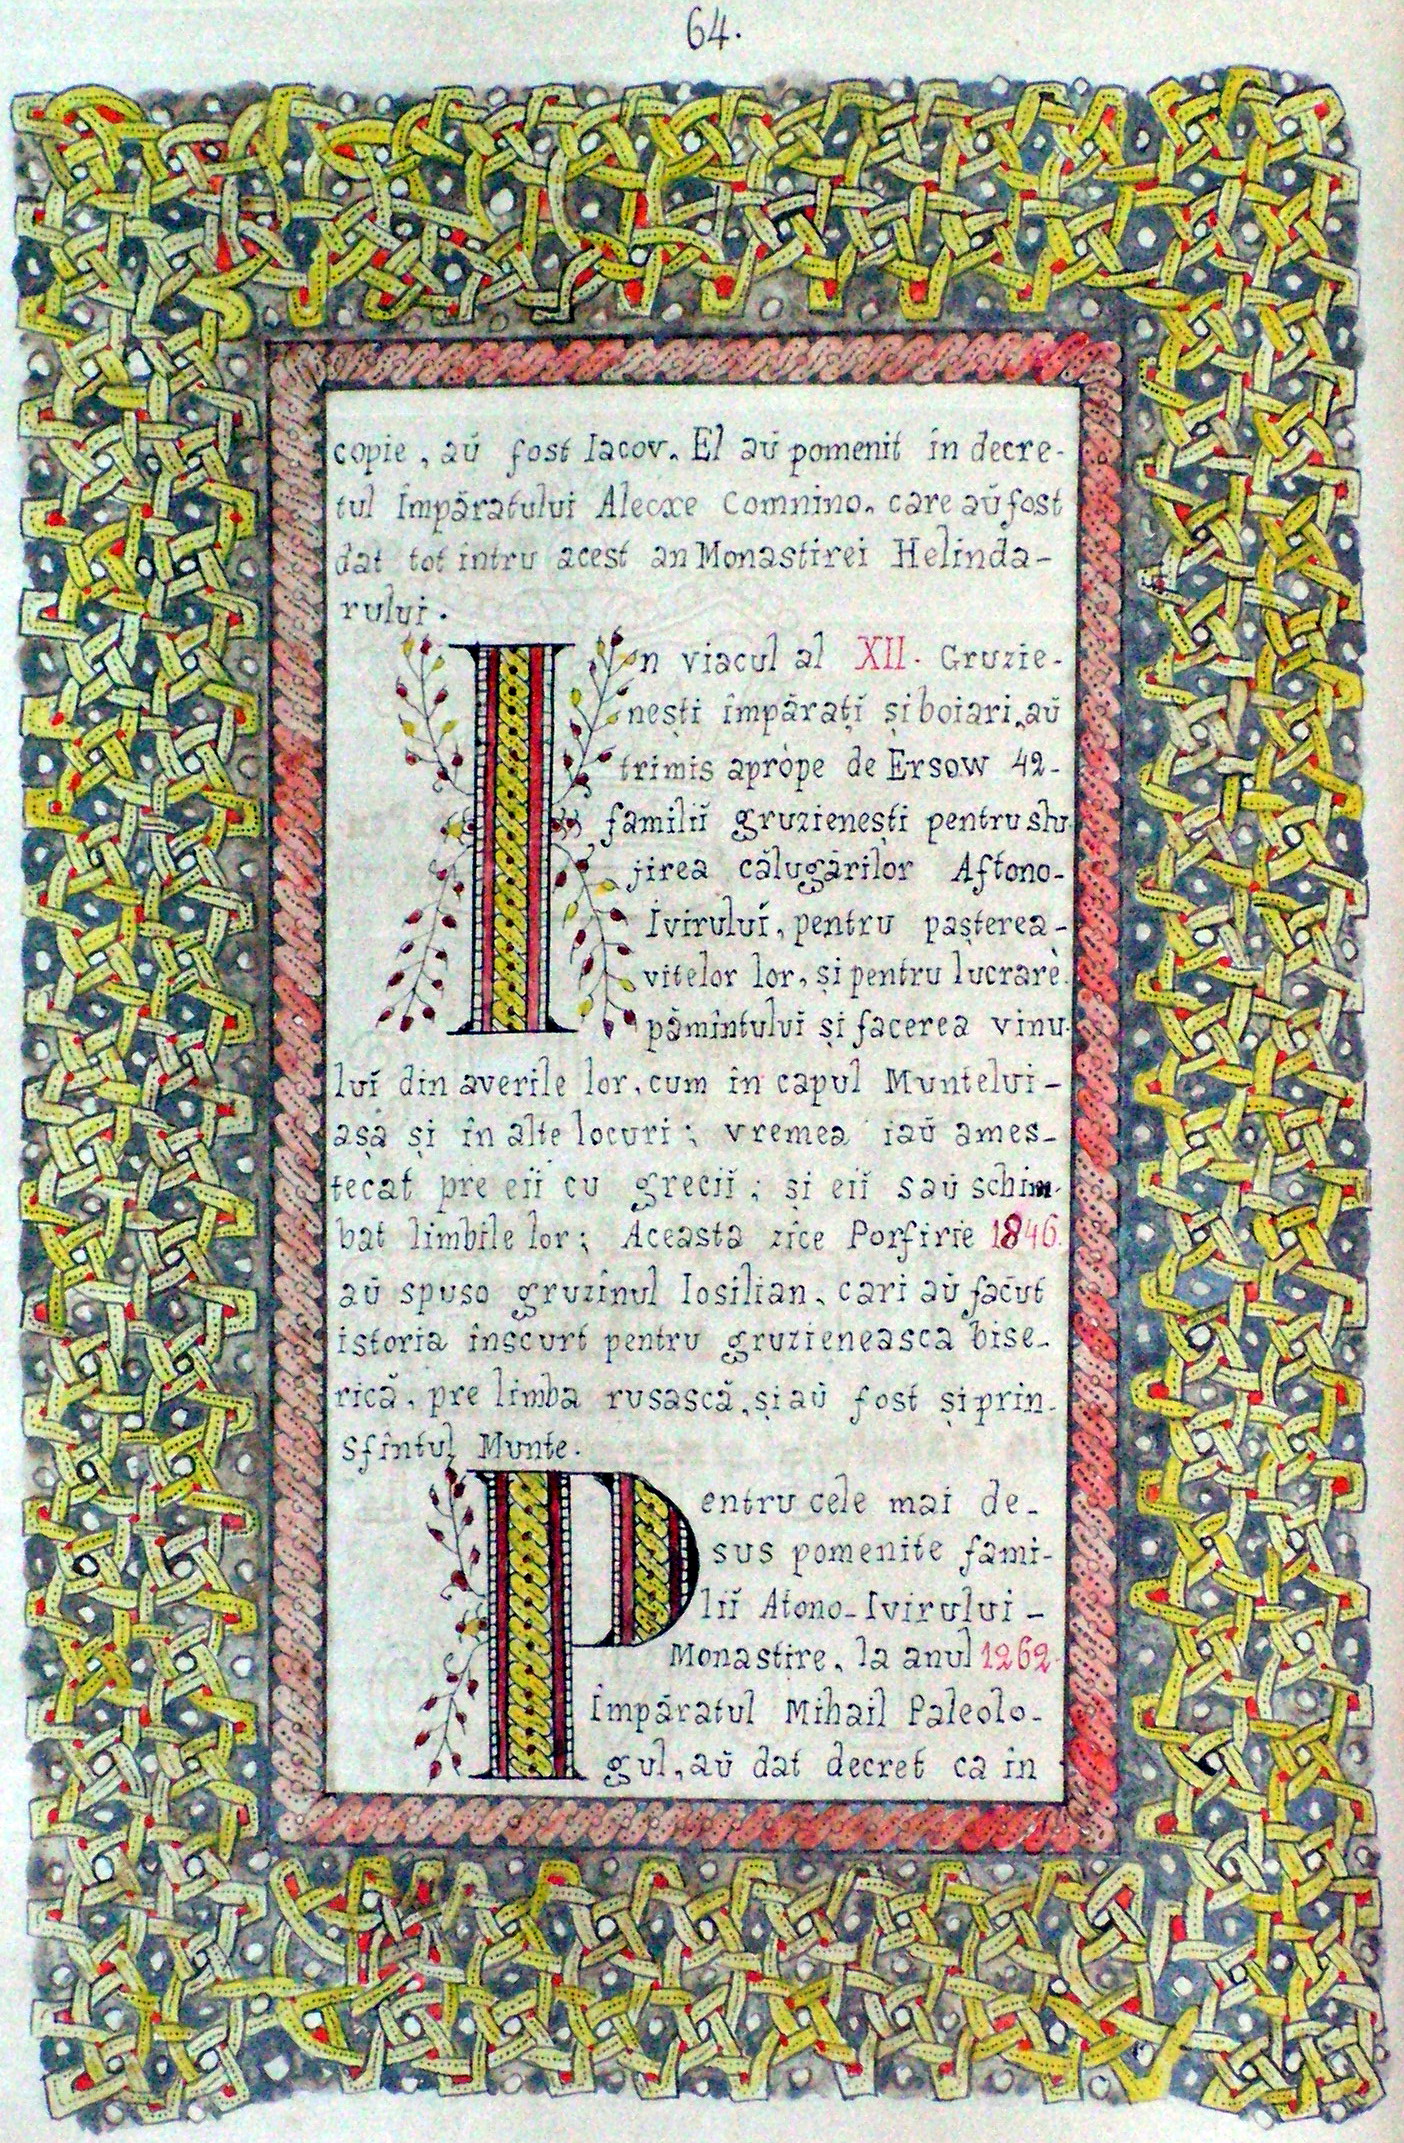 64.
copie, aŭ fost Iacov. El aŭ pomenit în decre-
tul împăratului Alecxe Comnino, care aŭ fost
dat tot întru acest an Monastirei Helinda-
rului.
In viacul al XII. Gruzie-
nești împărațĭ și boiari, aŭ
trimis apròpe de Ersow 42-
familiĭ gruzienești pentru slu-
jirea călugărilor Aftono-
Ivirului, pentru pașterea-
vitelor lor, și pentru lucrare.
pămîntului și facerea vinu-
luĭ din averile lor, cum în capul Muntelui-
așa și în alte locuri; vremea iaŭ ames-
tecat pre eiĭ cu greciĭ; și eiĭ saŭ schim-
bat limbile lor; Aceasta zice Porfirie 1846.
aŭ spuso gruzînul Iosilian, cari aŭ făcut
istoria înscurt pentru gruzieneasca bise-
rică, pre limba rusască, și aŭ fost și prin-
sfîntul Munte.
Pentru cele mai de-
sus pomenite fami-
liĭ Atono-Ivirului-
Monastire, la anul 1262-
Împăratul Mihail Paleolo-
gul, aŭ dat decret ca în